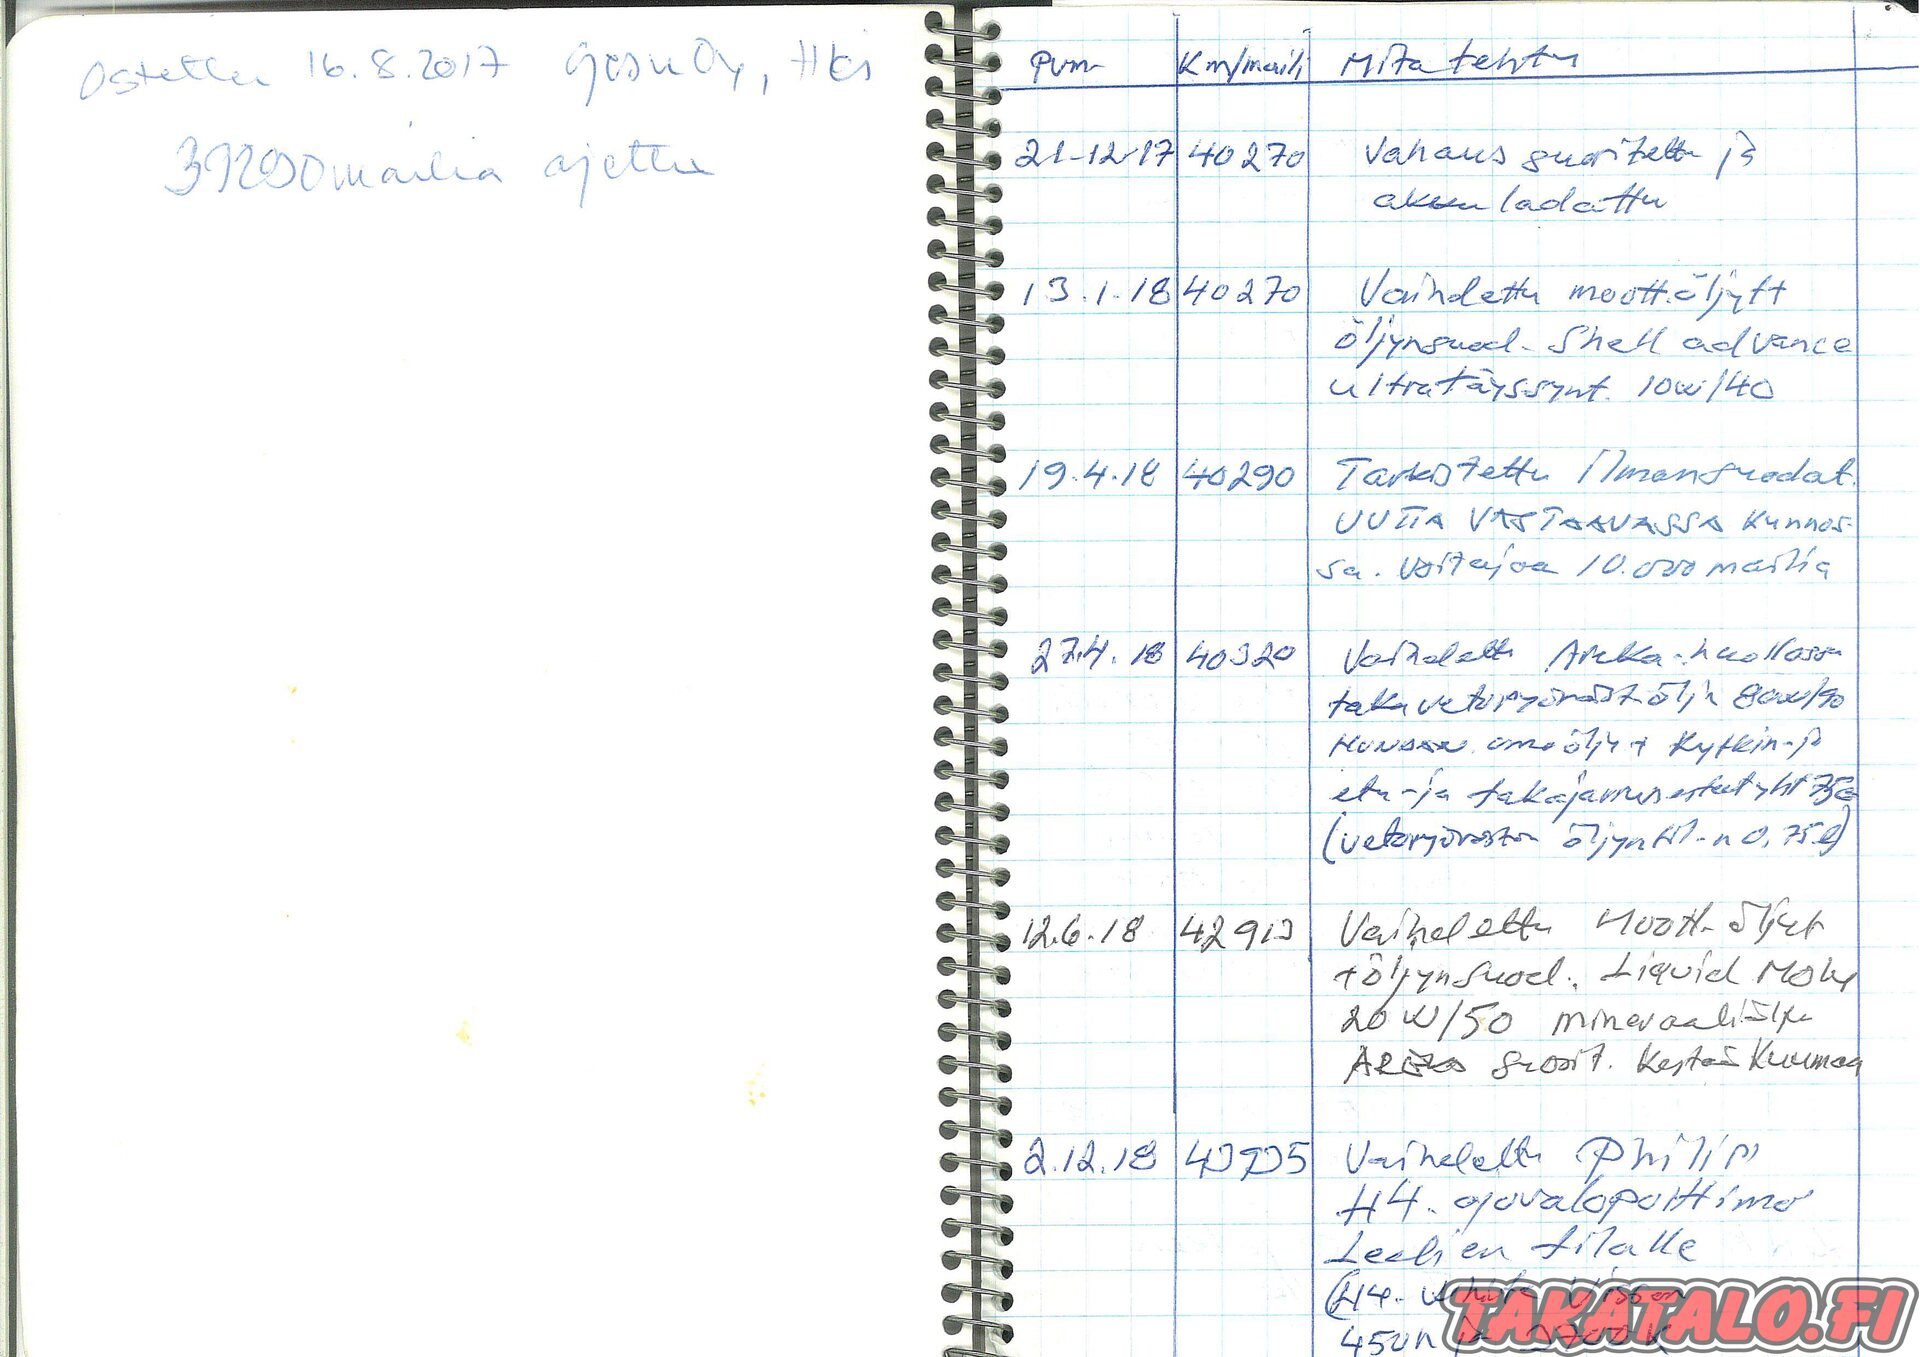 Ostettu 16.8.2017 Oy, Hki
39200 mailia ajettu
Pvm Km/maili Mitä tehty
21-12-17 40270 Vahaus suoritettu ja
akku ladattu
13.1.18 40270 Vaihdettu moott.öljyt+
öljynsuod. Shell advance
ultra täyssynt. 10w/40
19.4.18 40290 Tarkistettu ilmansuodat.
UUTTA VASTAAVASSA kunnos-
sa. Voi ajaa 10.000 mailia
27.4.18 40320 Vaihdettu -huollossa
takavetopyörästöölj. 80w/90
HONDAN oma öljy + Kytkin- ja
etu- ja takajarrunesteet yht 75e
(vetopyörästön öljyntil. n 0,75l)
12.6.18 42913 Vaihdettu Moott-öljyt
+öljynsuod. Liquid Moly
20W/50 mineraaliöljy
suosit. Kestää kuumaa
2.12.18 43935 Vaihdettu Philips
H4. ajovalopolttimo
Ledien tilalle
(H4.
TAKATALO.FI